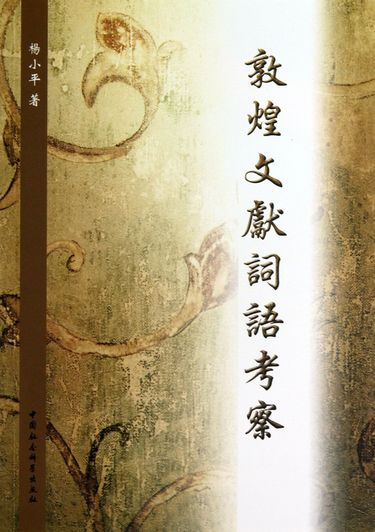 敦煌文獻詞語考察
楊小平 著
中国社会科学出版社